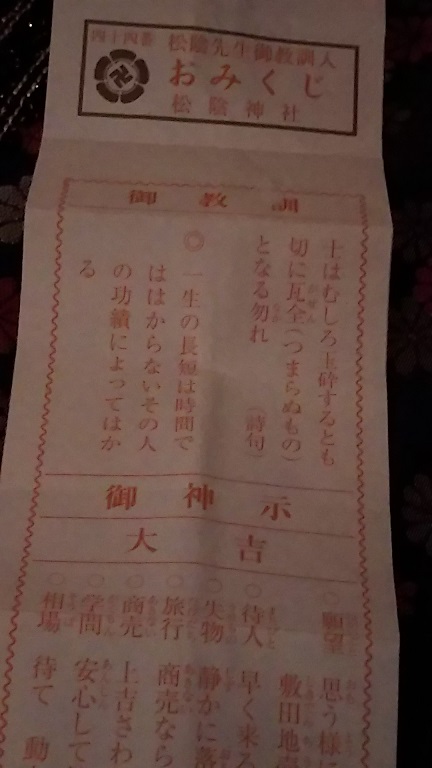 四十四番 松陰先生御教訓入
おみくじ
松陰神社
御教訓
士はむしろ玉砕するとも
切に瓦全(つまらぬもの)
となる勿れ (詩句)
◎一生の長短は時間で
ははからないその人
の功績によってはか
る
御神示
大吉
○願望 思う様に
○待人 早く来る
○失物 静かに落
○旅行 商売なら
○商売 上吉さわ
○学問 安心して
○相場 待て 動